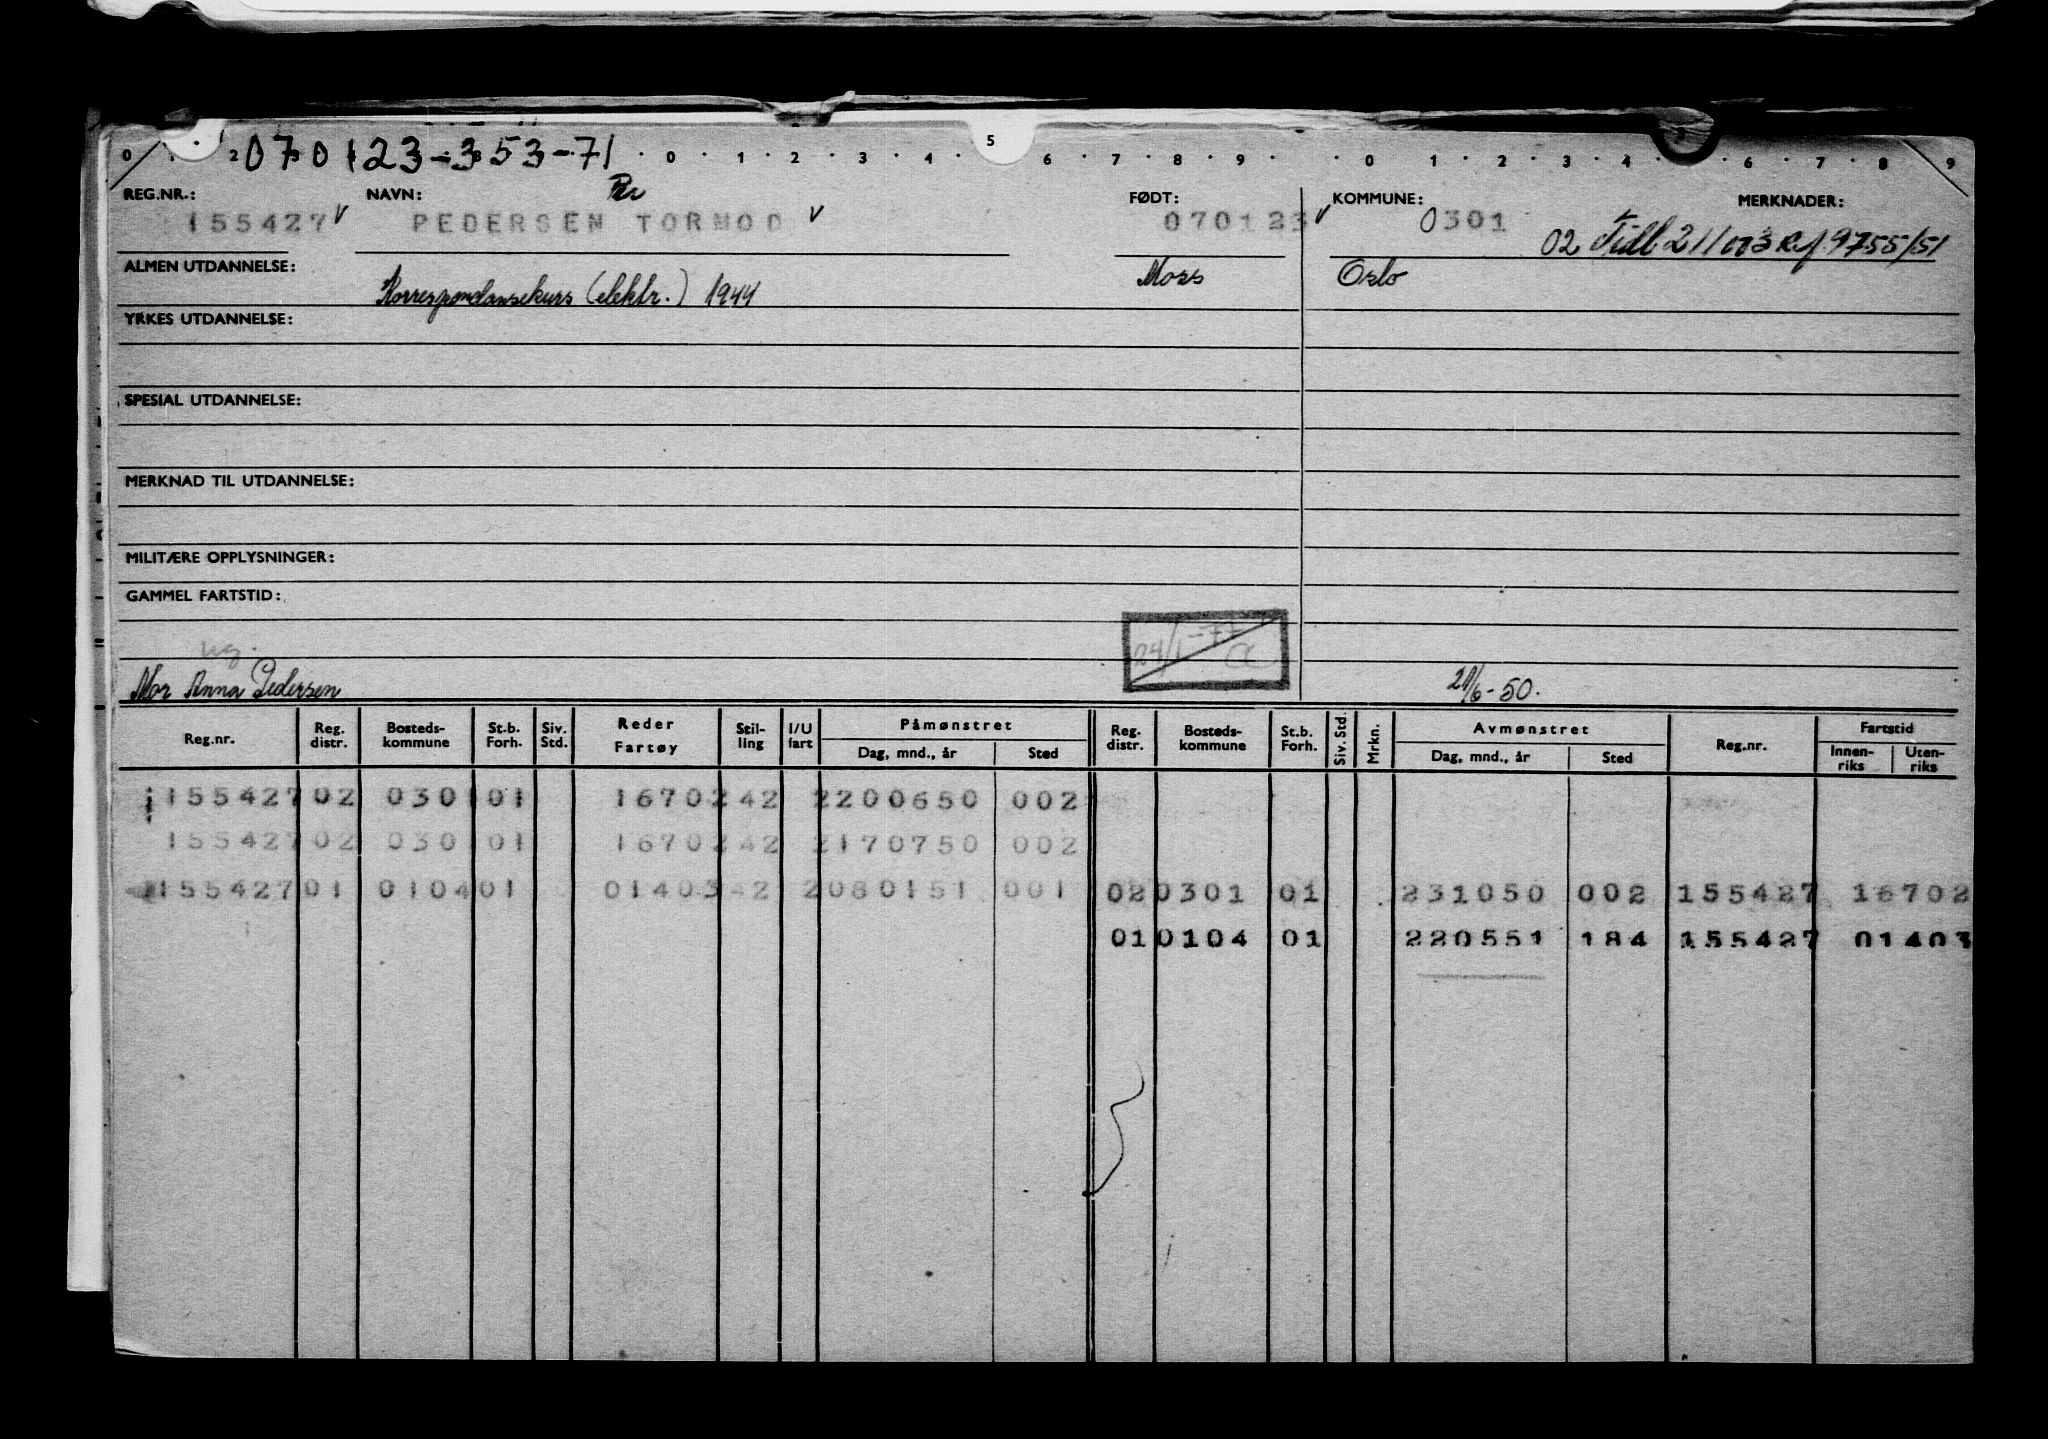 070123-353-71
0 1 2 3 5 0 1 2 3 4 5 6 7 8 9 0 1 2 3 4 6 7 8 9
REG.NR.: NAVN: FØDT: KOMMUNE: MERKNADER:
155427 V PEDERSEN TORMOD V 070123 V 0301
02 211003 Ref. 9755/51
ALMEN UTDANNELSE: Korrespondansekurs (elektr.) 1944 Moss Oslo
YRKES UTDANNELSE:
SPESIAL UTDANNELSE:
MERKNAD TIL UTDANNELSE:
MILITÆRE OPPLYSNINGER:
GAMMEL FARTSTID:
ug.
24/1-77
Mor Anna Pedersen 21/6-50.
Reg.nr. Reg. distr. Bosteds-kommune St.b. Forh. Siv. Std. Reder Fartøy Stil-ling I/U fart Påmønstret Dag, mnd., år Sted Reg. distr. Bosteds-kommune St.b. Forh. Siv. Std. Mrkn. Avmønstret Dag, mnd., år Sted Reg.nr. Fartstid Innen-riks Uten-riks
155427 02 0301 01 16702 42 2200650 002
155427 02 0301 01 16702 42 2170750 002
155427 01 0104 01 01403 42 2080151 001 02 0301 01 231050 002 155427 16702
01 0104 01 220551 184 155427 01403